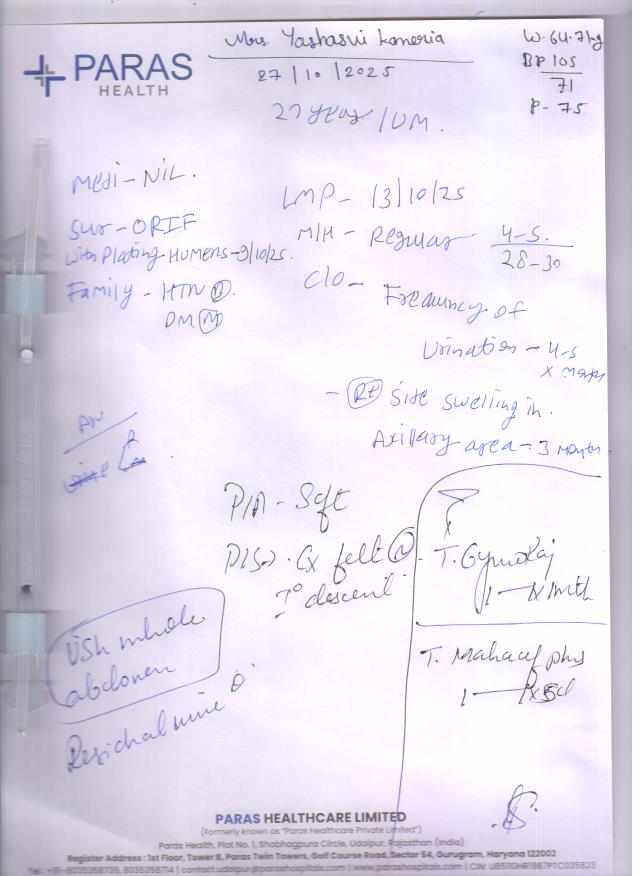 Mrs. Yashasvi Kaneria
27/10/2025
W-64.7kg
BP 105
71
P-75
PARAS
HEALTH
27 year / UM.
Medi-NIL.
LMP- 13/10/25
Sur-ORIF
with Plating Humens-9/10/25.
M/H- Regular 4-5.
28-30
Family-HTN
DM
C/O- Frequency of
Urination-4-5
x
- Rt Side Swelling in
Axillary area-3 Month.
P/A-Soft
Cx felt
1° descent
1 x mth
USh whole
abdomen
Residual urine
T.
1 x 5d
PARAS HEALTHCARE LIMITED
(Formerly known as "Paras Healthcare Private Limited")
Paras Health, Plot No. 1, Shobhagpura Circle, Udaipur, Rajasthan (India)
Register Address : 1st Floor, Tower B, Paras Twin Towers, Golf Course Road, Sector 54, Gurugram, Haryana 122002
Tel.: +91-8035358739, 8035358714 | contact.udaipur@parashospitals.com | www.parashospitals.com | CIN: U85110HR1987PTC035823